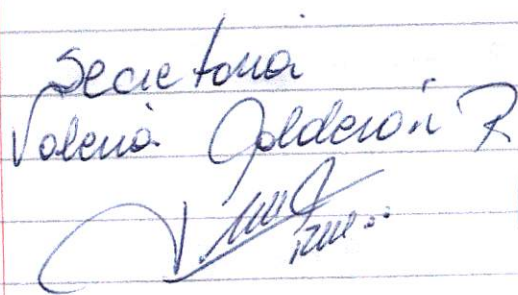 Secretaria
Valeria Calderón R